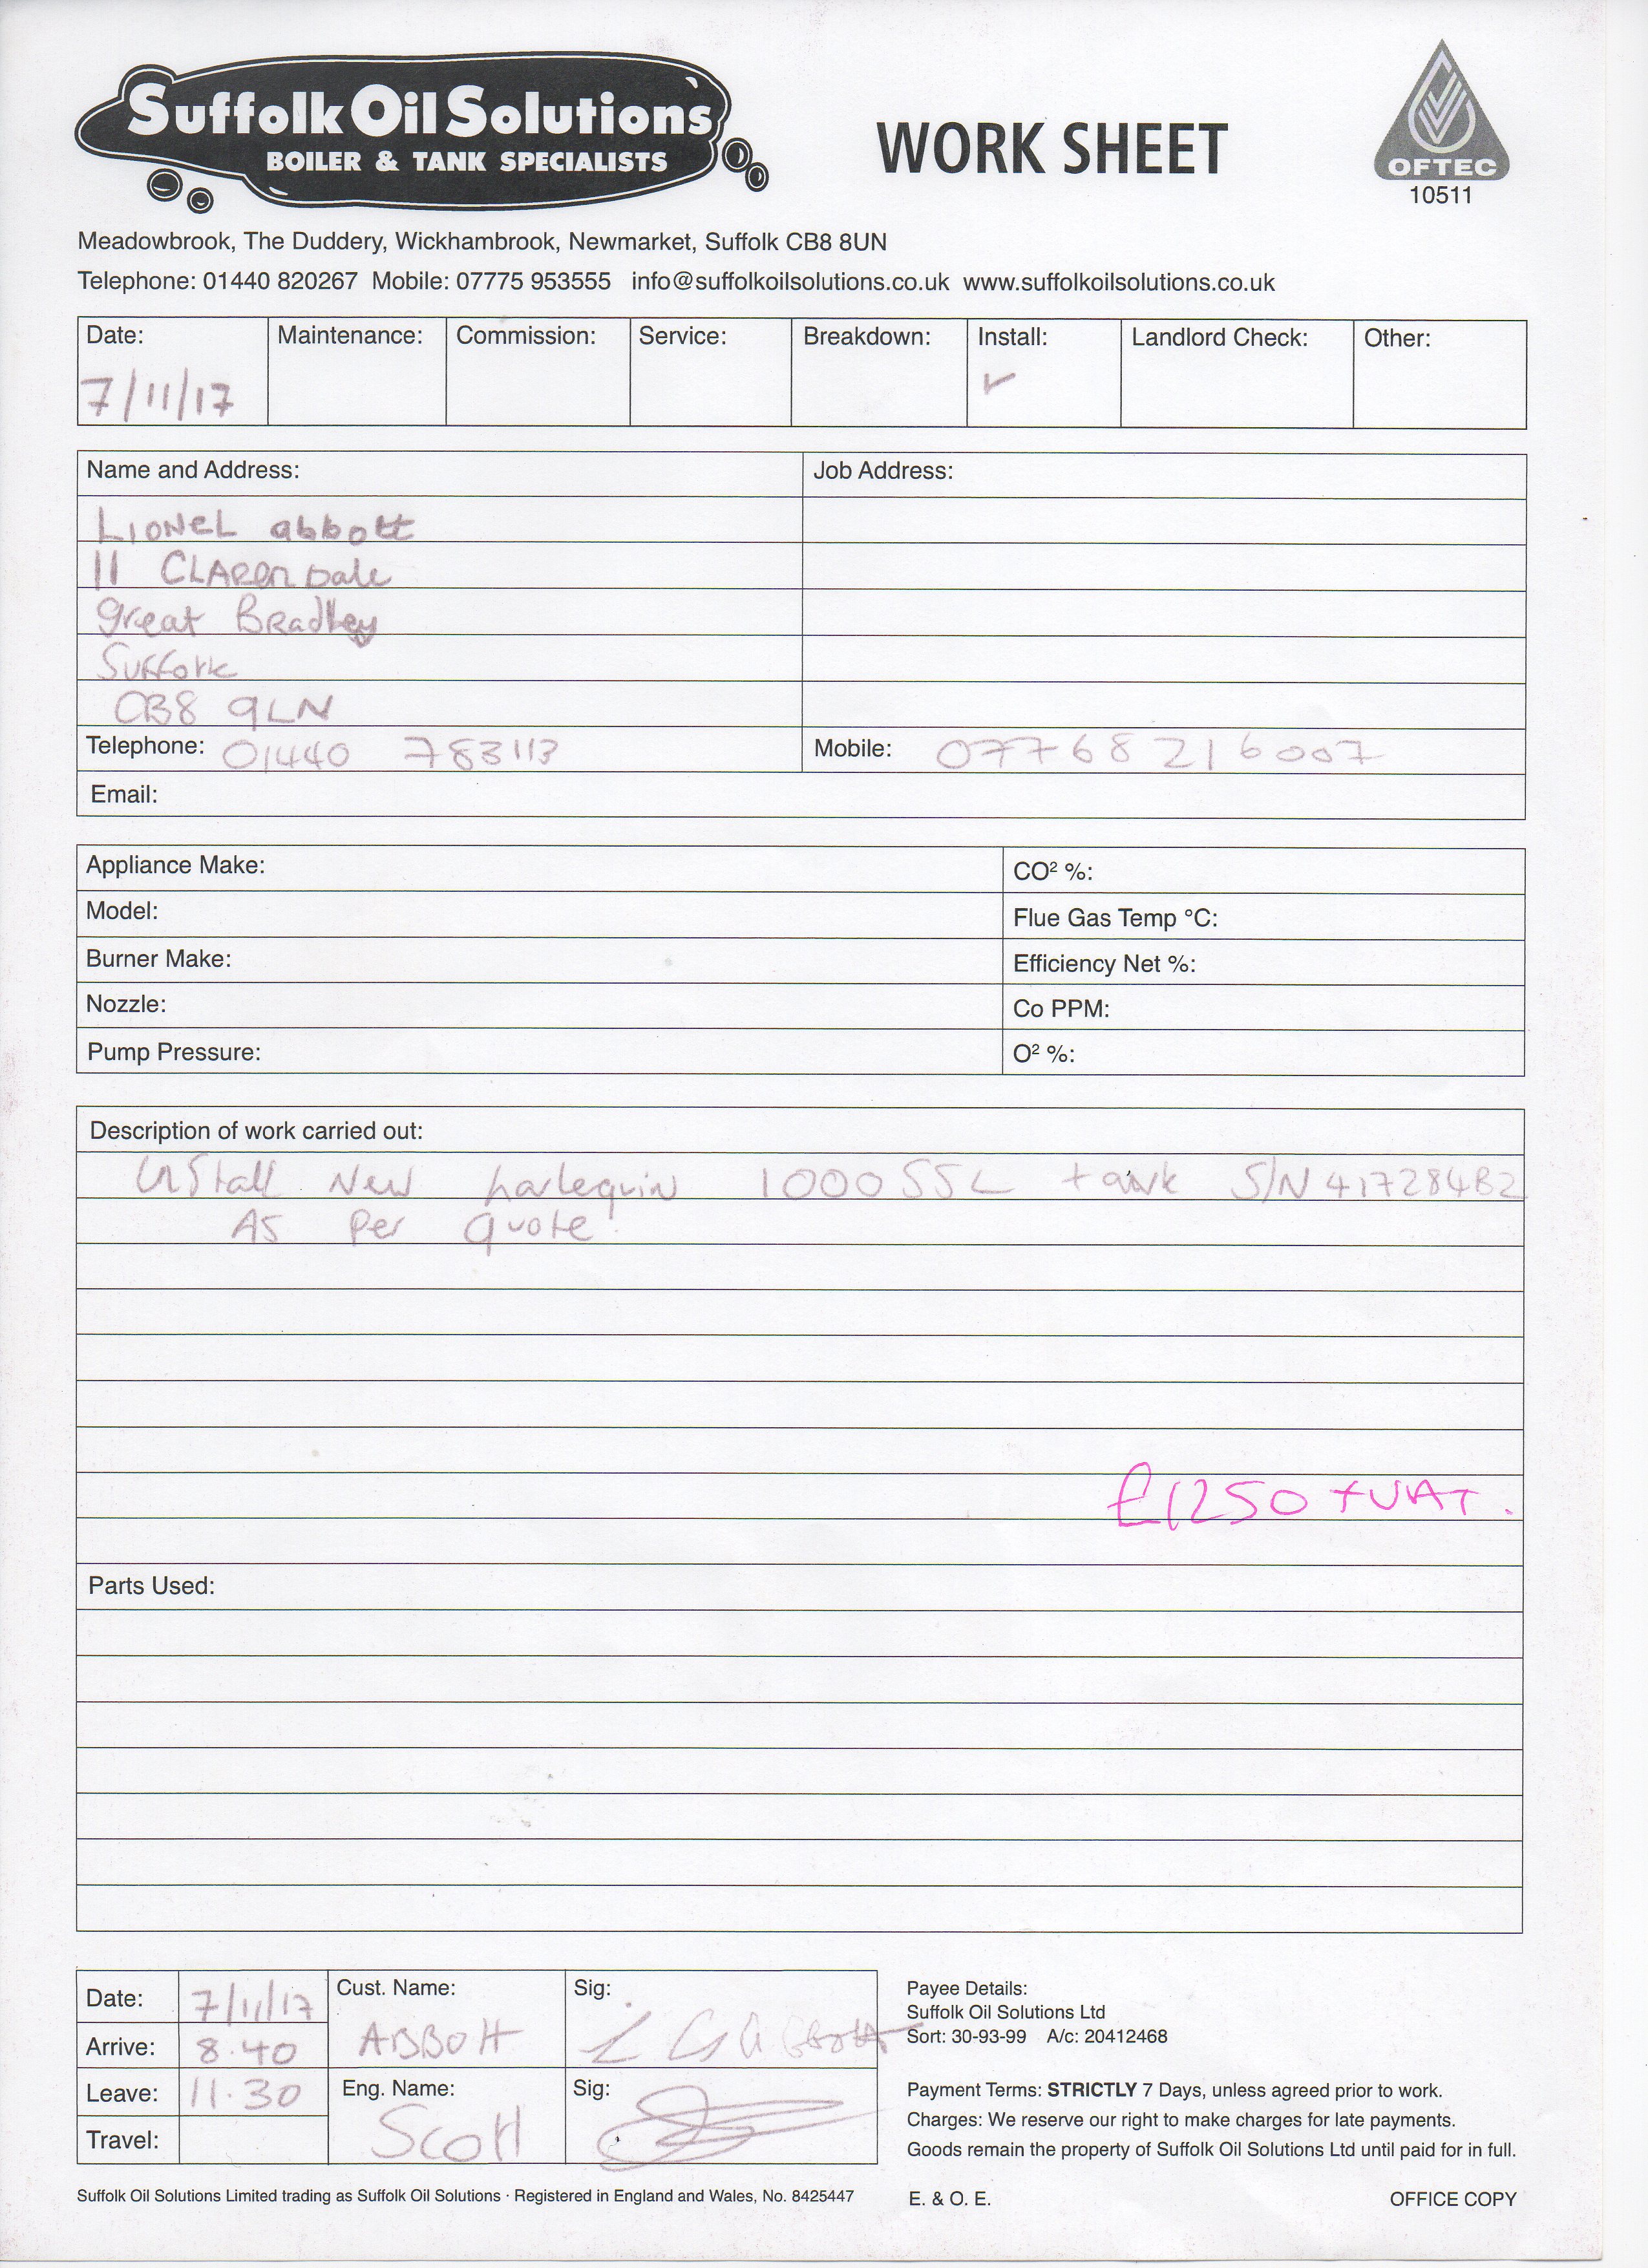 Suffolk Oil Solutions
BOILER & TANK SPECIALISTS
WORK SHEET
OFTEC
10511
Meadowbrook, The Duddery, Wickhambrook, Newmarket, Suffolk CB8 8UN
Telephone: 01440 820267 Mobile: 07775 953555 info@suffolkoilsolutions.co.uk www.suffolkoilsolutions.co.uk
Date: Maintenance: Commission: Service: Breakdown: Install: Landlord Check: Other:
7/11/17 ✓
Name and Address: Job Address:
Lionel abbott
11 CLAREnDale
great Bradley
Suffolk
CB8 9LN
Telephone: 01440 783113 Mobile: 07768216007
Email:
Appliance Make: CO² %:
Model: Flue Gas Temp °C:
Burner Make: Efficiency Net %:
Nozzle: Co PPM:
Pump Pressure: O² %:
Description of work carried out:
Install New harlequin 1000SSL tank S/N 41728482
As Per quote.
£1250 +VAT.
Parts Used:
Date: 7/11/17 Cust. Name: Sig:
Arrive: 8.40 ABBOtt L G Abbott
Leave: 11.30 Eng. Name: Sig:
Travel: Scott
Payee Details:
Suffolk Oil Solutions Ltd
Sort: 30-93-99 A/c: 20412468
Payment Terms: STRICTLY 7 Days, unless agreed prior to work.
Charges: We reserve our right to make charges for late payments.
Goods remain the property of Suffolk Oil Solutions Ltd until paid for in full.
Suffolk Oil Solutions Limited trading as Suffolk Oil Solutions · Registered in England and Wales, No. 8425447
E. & O. E. OFFICE COPY